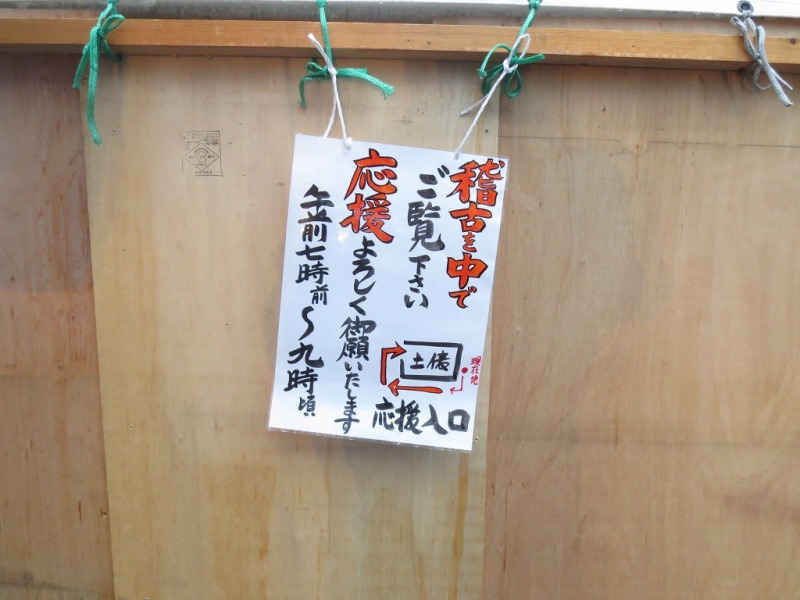 稽古を中で
ご覧下さい
応援よろしく御願いたします
午前七時前～九時頃
土俵
現在地
応援入口